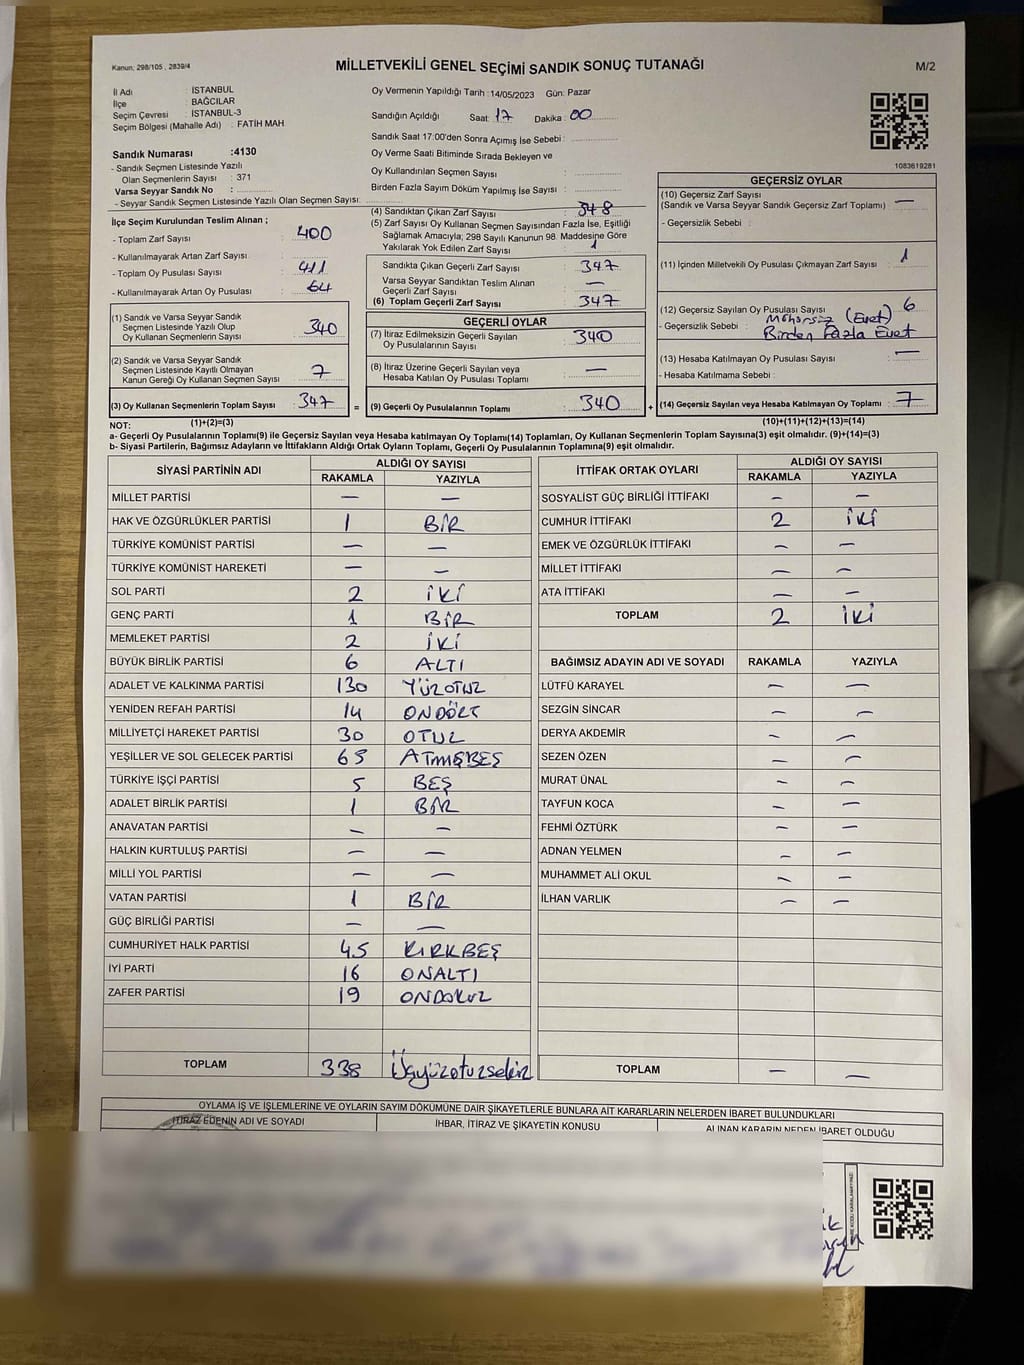 Kanun; 298/105 , 2839/4
MİLLETVEKİLİ GENEL SEÇİMİ SANDIK SONUÇ TUTANAĞI
M/2
İl Adı : İSTANBUL
İlçe : BAĞCILAR
Seçim Çevresi : İSTANBUL-3
Seçim Bölgesi (Mahalle Adı) : FATİH MAH
Oy Vermenin Yapıldığı Tarih : 14/05/2023 Gün: Pazar
Sandığın Açıldığı Saat: 17 Dakika: 00
Sandık Saat 17:00'den Sonra Açımış İse Sebebi :
Oy Verme Saati Bitiminde Sırada Bekleyen ve
Oy Kullandırılan Seçmen Sayısı :
Birden Fazla Sayım Döküm Yapılmış İse Sayısı :
1083619281
Sandık Numarası :4130
- Sandık Seçmen Listesinde Yazılı
Olan Seçmenlerin Sayısı : 371
Varsa Seyyar Sandık No :
- Seyyar Sandık Seçmen Listesinde Yazılı Olan Seçmen Sayısı:
İlçe Seçim Kurulundan Teslim Alınan ;
- Toplam Zarf Sayısı : 400
- Kullanılmayarak Artan Zarf Sayısı :
- Toplam Oy Pusulası Sayısı : 411
- Kullanılmayarak Artan Oy Pusulası : 64
(1) Sandık ve Varsa Seyyar Sandık
Seçmen Listesinde Yazılı Olup
Oy Kullanan Seçmenlerin Sayısı : 340
(2) Sandık ve Varsa Seyyar Sandık
Seçmen Listesinde Kayıtlı Olmayan
Kanun Gereği Oy Kullanan Seçmen Sayısı : 7
(3) Oy Kullanan Seçmenlerin Toplam Sayısı : 347
(4) Sandıktan Çıkan Zarf Sayısı : 348
(5) Zarf Sayısı Oy Kullanan Seçmen Sayısından Fazla İse, Eşitliği
Sağlamak Amacıyla; 298 Sayılı Kanunun 98. Maddesine Göre
Yakılarak Yok Edilen Zarf Sayısı : 1
Sandıkta Çıkan Geçerli Zarf Sayısı : 347
Varsa Seyyar Sandıktan Teslim Alınan
Geçerli Zarf Sayısı : —
(6) Toplam Geçerli Zarf Sayısı : 347
GEÇERLİ OYLAR
(7) İtiraz Edilmeksizin Geçerli Sayılan
Oy Pusulalarının Sayısı : 340
(8) İtiraz Üzerine Geçerli Sayılan veya
Hesaba Katılan Oy Pusulası Toplamı : —
= (9) Geçerli Oy Pusulalarının Toplamı : 340
GEÇERSİZ OYLAR
(10) Geçersiz Zarf Sayısı
(Sandık ve Varsa Seyyar Sandık Geçersiz Zarf Toplamı) : —
- Geçersizlik Sebebi :
(11) İçinden Milletvekili Oy Pusulası Çıkmayan Zarf Sayısı : 1
(12) Geçersiz Sayılan Oy Pusulası Sayısı : 6
- Geçersizlik Sebebi : Mühürsüz (Evet)
Birden Fazla Evet
(13) Hesaba Katılmayan Oy Pusulası Sayısı : —
- Hesaba Katılmama Sebebi :
+ (14) Geçersiz Sayılan veya Hesaba Katılmayan Oy Toplamı : 7
NOT: (1)+(2)=(3) (10)+(11)+(12)+(13)=(14)
a- Geçerli Oy Pusulalarının Toplamı(9) ile Geçersiz Sayılan veya Hesaba katılmayan Oy Toplamı(14) Toplamları, Oy Kullanan Seçmenlerin Toplam Sayısına(3) eşit olmalıdır. (9)+(14)=(3)
b- Siyasi Partilerin, Bağımsız Adayların ve İttifakların Aldığı Ortak Oyların Toplamı, Geçerli Oy Pusulalarının Toplamına(9) eşit olmalıdır.
SİYASİ PARTİNİN ADI ALDIĞI OY SAYISI
RAKAMLA YAZIYLA
MİLLET PARTİSİ — —
HAK VE ÖZGÜRLÜKLER PARTİSİ 1 BİR
TÜRKİYE KOMÜNİST PARTİSİ — —
TÜRKİYE KOMÜNİST HAREKETİ — —
SOL PARTİ 2 İKİ
GENÇ PARTİ 1 BİR
MEMLEKET PARTİSİ 2 İKİ
BÜYÜK BİRLİK PARTİSİ 6 ALTI
ADALET VE KALKINMA PARTİSİ 130 YÜZOTUZ
YENİDEN REFAH PARTİSİ 14 ONDÖRT
MİLLİYETÇİ HAREKET PARTİSİ 30 OTUZ
YEŞİLLER VE SOL GELECEK PARTİSİ 65 ATMIŞBEŞ
TÜRKİYE İŞÇİ PARTİSİ 5 BEŞ
ADALET BİRLİK PARTİSİ 1 BİR
ANAVATAN PARTİSİ — —
HALKIN KURTULUŞ PARTİSİ — —
MİLLİ YOL PARTİSİ — —
VATAN PARTİSİ 1 BİR
GÜÇ BİRLİĞİ PARTİSİ — —
CUMHURİYET HALK PARTİSİ 45 KIRKBEŞ
İYİ PARTİ 16 ONALTI
ZAFER PARTİSİ 19 ONDOKUZ
TOPLAM 338 Üçyüzotuzsekiz
İTTİFAK ORTAK OYLARI ALDIĞI OY SAYISI
RAKAMLA YAZIYLA
SOSYALİST GÜÇ BİRLİĞİ İTTİFAKI — —
CUMHUR İTTİFAKI 2 İKİ
EMEK VE ÖZGÜRLÜK İTTİFAKI — —
MİLLET İTTİFAKI — —
ATA İTTİFAKI — —
TOPLAM 2 İKİ
BAĞIMSIZ ADAYIN ADI VE SOYADI RAKAMLA YAZIYLA
LÜTFÜ KARAYEL — —
SEZGİN SİNCAR — —
DERYA AKDEMİR — —
SEZEN ÖZEN — —
MURAT ÜNAL — —
TAYFUN KOCA — —
FEHMİ ÖZTÜRK — —
ADNAN YELMEN — —
MUHAMMET ALİ OKUL — —
İLHAN VARLIK — —
TOPLAM — —
OYLAMA İŞ VE İŞLEMLERİNE VE OYLARIN SAYIM DÖKÜMÜNE DAİR ŞİKAYETLERLE BUNLARA AİT KARARLARIN NELERDEN İBARET BULUNDUKLARI
İTİRAZ EDENİN ADI VE SOYADI İHBAR, İTİRAZ VE ŞİKAYETİN KONUSU ALINAN KARARIN NEDEN İBARET OLDUĞU